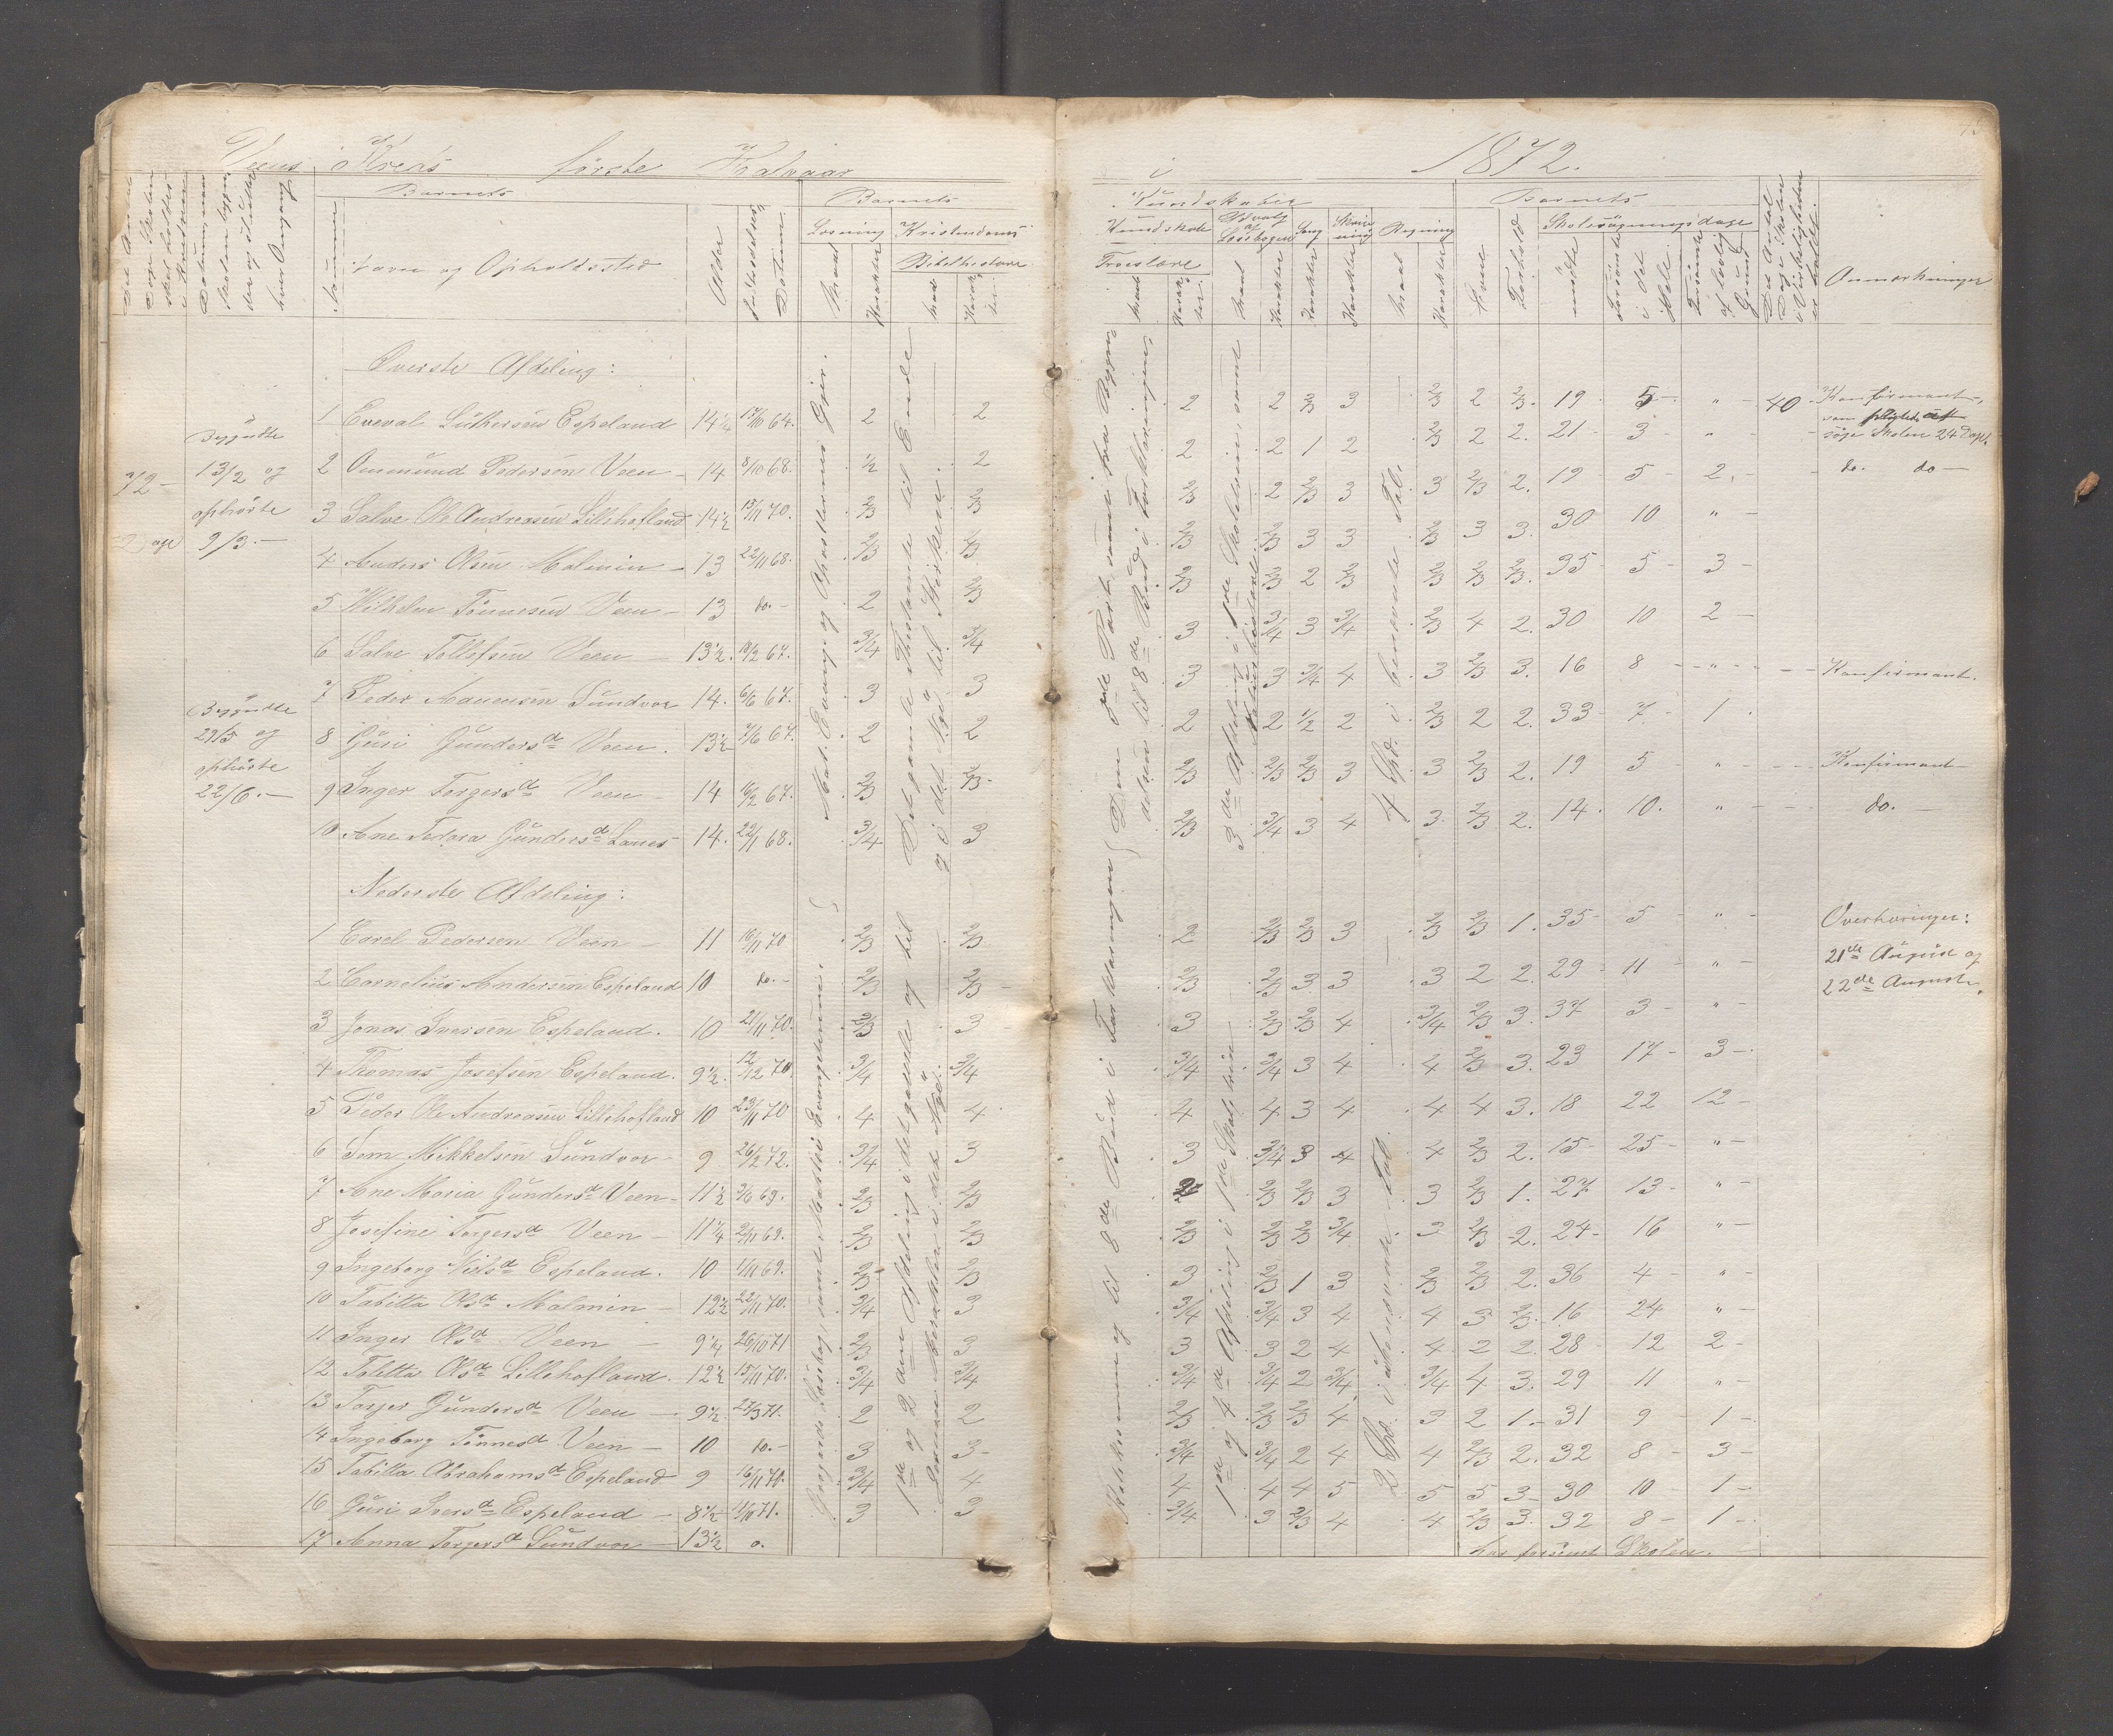 Veens Kreds første Halvaar i 1872.
Barnets
Barnets
Kundskaber
Barnets
Nummer
Navn og Opholdssted
Alder
Indtrædelses Datum
Læsning
Kristendoms
Kundskab
Udvalg af Læsebogen
Sang
Skrivning
Regning
Skolesøgningsdage
Bibelhistorie
Troeslære
Maal
Karakter
Evne
Forhold
mødte
forsømte i det Hele
forsømte af lovlig Grund
Det Antal Dage Skolen i Virkeligheden er holdt.
Anmærkninger
Øverste Afdeling:
1 Enevald Luthersen Espeland 14¼ 17/10 64. 2 2 2 2 2/3 3 2/3 2 2/3. 19 5 " 40 Konfirmant,
søge Skolen 24 Dage.
2 Ommund Pedersen Veen 14 8/10 68. ½ 2 2 2 1 2 2/3 2 2. 21 3 " do. do
3 Salve Ole Andreasen Lillehofland 14½ 15/11 70. 2/3 2/3 2/3 2 2/3 3 3 2/3 2. 19 5 2.
4 Anders Olsen Malmin 13 22/11 68. 2/3 2/3 2/3 2/3 3 3 2/3 3 3. 30 10 "
5 Wilhelm Tønnesen Veen 13 do. 2 2/3 2/3 2/3 2 2/3 2/3 2/3 2/3. 35 5 3
6 Salve Tollefsen Veen 13½. 10/2 67. 3/4 3/4 3 3/4 3 3/4 2/3 4 2. 30 10 2
7 Peder Aanensen Sundvor 14. 6/6 67. 3 3 3 3 3/4 4 3 2/3 3. 16 8 " Konfirmant.
8 Guri Gundersd Veen. 13½ 7/6 67. 2 2 2 2 ½ 2 2/3 2 2. 33 7 1
9 Inger Torgersd Veen 14 16/2 67. 2/3 2/3 2/3 2/3 2/3 3 3 2/3 2. 19 5 " Konfirmant
10 Ane Tedora Gundersd Lones 14. 22/1 68. 3/4 3 2/3 3/4 3 4 3. 2/3 2. 14. 10. " do.
72
Dage
Begyndte
13/2 og
ophørte
9/3.
Begyndte
29/5 og
ophørte
22/6.
Mat. Evang. og Apostlernes Gjer.
Det gamle Testamente til Ende
og i det Nye til Stephanus.
4 Spd. i benævnte Tal.
Nederste Afdeling:
1 Carel Pedersen Veen 11 16/11 70 2/3 2/3 2 2/3 2/3 3 2/3 2/3 1. 35 5 " Overhøringer:
21de August og
22de August.
2 Cornelius Andersen Espeland 10 do. 2/3 2/3 2/3 2/3 3 3 3 2 2. 29 11 "
3 Jonas Iversen Espeland. 10 21/11 70. 2/3 3 3 2/3 2/3 4 3/4 2/3 3. 37 3 "
4 Thomas Josefsen Espeland. 9½. 12/12 70. 3/4 3/4 3/4 3/4 3 4 4 2/3 3. 23 17 3
5 Peder Ole Andreasen Lillehofland 10 23/11 70 4 4 4 4 3 4 4 4 3. 18 22 12
6 Tom Mikkelsen Sundvor 9 26/2 72. 3/4 3 3 3/4 3 4 4 2/3 2. 15 25 "
7 Ane Maria Gundersd Veen 11½ 3/6 69. 2/3 2/3 2 2/3 2/3 3 3 2/3 1. 27 13 "
8 Josefine Torgersd Veen 11¼ 2/11 69. 2/3 2/3 2/3 2/3 2/3 3/4 3 2/3 2. 24 16 "
9 Ingeborg Nielsd Espeland. 10 1/11 69. 2/3 2/3 3 2/3 1 3 2/3 2/3 2. 36 4 "
10 Tabitta Olsd Malmin 12½ 22/11 70. 3/4 3 3/4 3/4 3 4 4 3 2/3. 16 24 "
11 Inger Olsd Veen 9¼ 26/10 71 2/3 3 3 3 2 4 4 2 2. 28 12 2
12 Talette Olsd Lillehofland. 12½ 15/11 70. 3/4 3/4 3/4 3/4 2 3/4 3/4 4 3. 29 11 "
13 Torjer Gundersd Veen 9½. 27/3 71. 2 2 2/3 2/3 2/3 4 3 2 1. 31 9 1
14 Ingeborg Tønnesd Veen 10 do. 3 3 3/4 3/4 2 4 4 2/3 2. 32 8 3
15 Tabitta Abrahamsd Espeland 9 16/11 70. 3/4 4 4 4 4 5 5 5 3 30 10 1
16 Guri Iversd Espeland 8½ 1/10 71. 3 3 3/4 3 2/3 4 4 2/3 3. 32 8 1
17 Anna Torgersd Sundvor 13½ o. har forsømt Skolen.